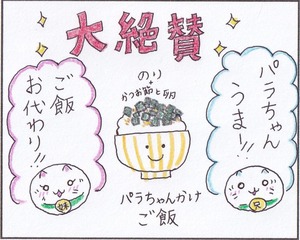 大絶賛
パラちゃん
うま!!
のり
+
かつお節と卵
ご飯
お代わり!!
パラちゃんかけ
ご飯
兄
妹